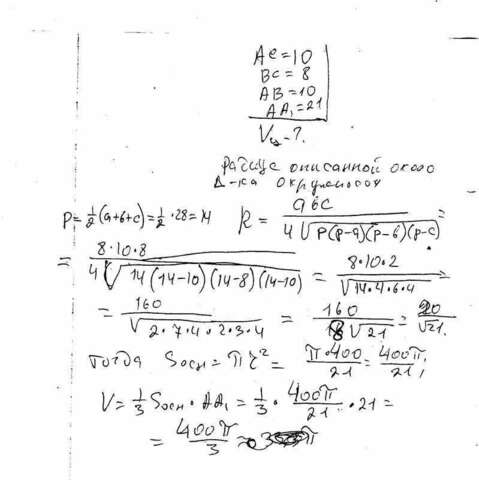 AC = 10
BC = 8
AB = 10
AA₁ = 21
Vц - ?
Радиус описанной около
Δ-ка окружности
P = 1/2 (a+b+c) = 1/2 · 28 = 14 R = abc / 4√P(P-a)(P-b)(P-c) =
= 8·10·8 / 4√14(14-10)(14-8)(14-10) = 8·10·2 / √14·4·6·4 =
= 160 / √2·7·4·2·3·4 = 160 / 8√21 = 20 / √21.
тогда Sосн = πr² = π·400 / 21 = 400π / 21;
V = 1/3 Sосн · AA₁ = 1/3 · 400π / 21 · 21 =
= 400π / 3 =